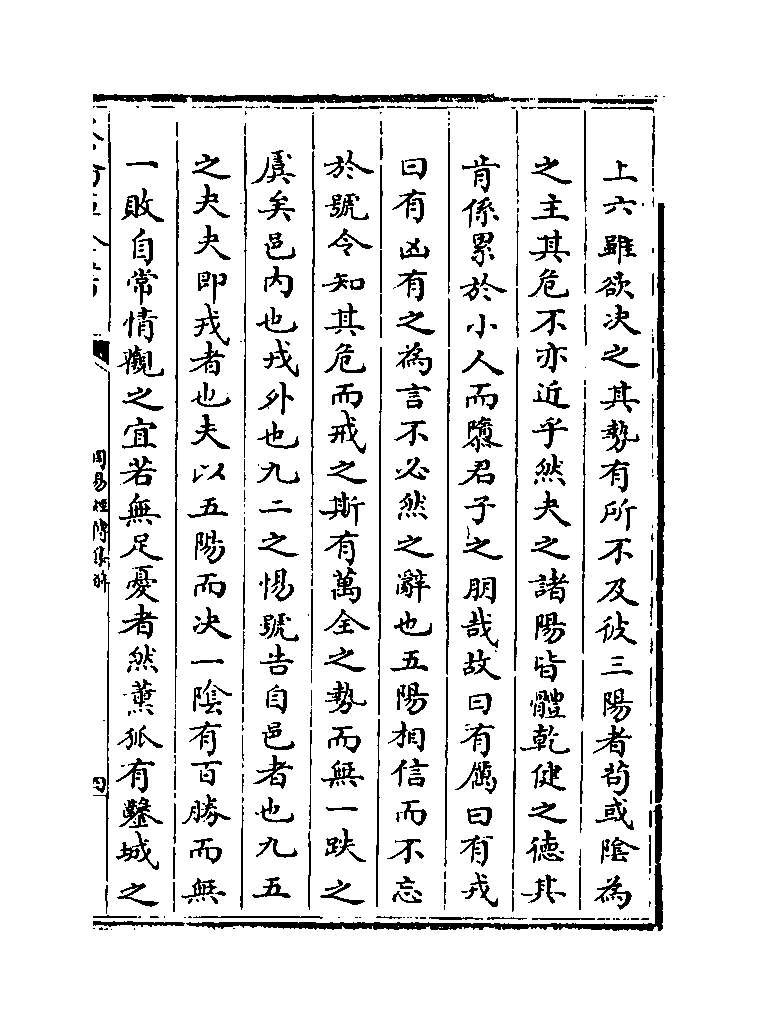 上六雖欲决之其勢有所不及彼三陽者茍或陰為
之主其危不亦近乎然夬之諸陽皆體乾健之德其
肯係累於小人而隳君子之朋哉故曰有厲曰有戎
曰有凶有之為言不必然之辭也五陽相信而不忘
於號令知其危而戒之斯有萬全之勢而無一跌之
虞矣邑内也戎外也九二之惕號告自邑者也九五
之夬夬即戎者也夫以五陽而决一陰有百勝而無
一敗自常情觀之宜若無足憂者然薰狐有鑿城之
周易經傳集解
四